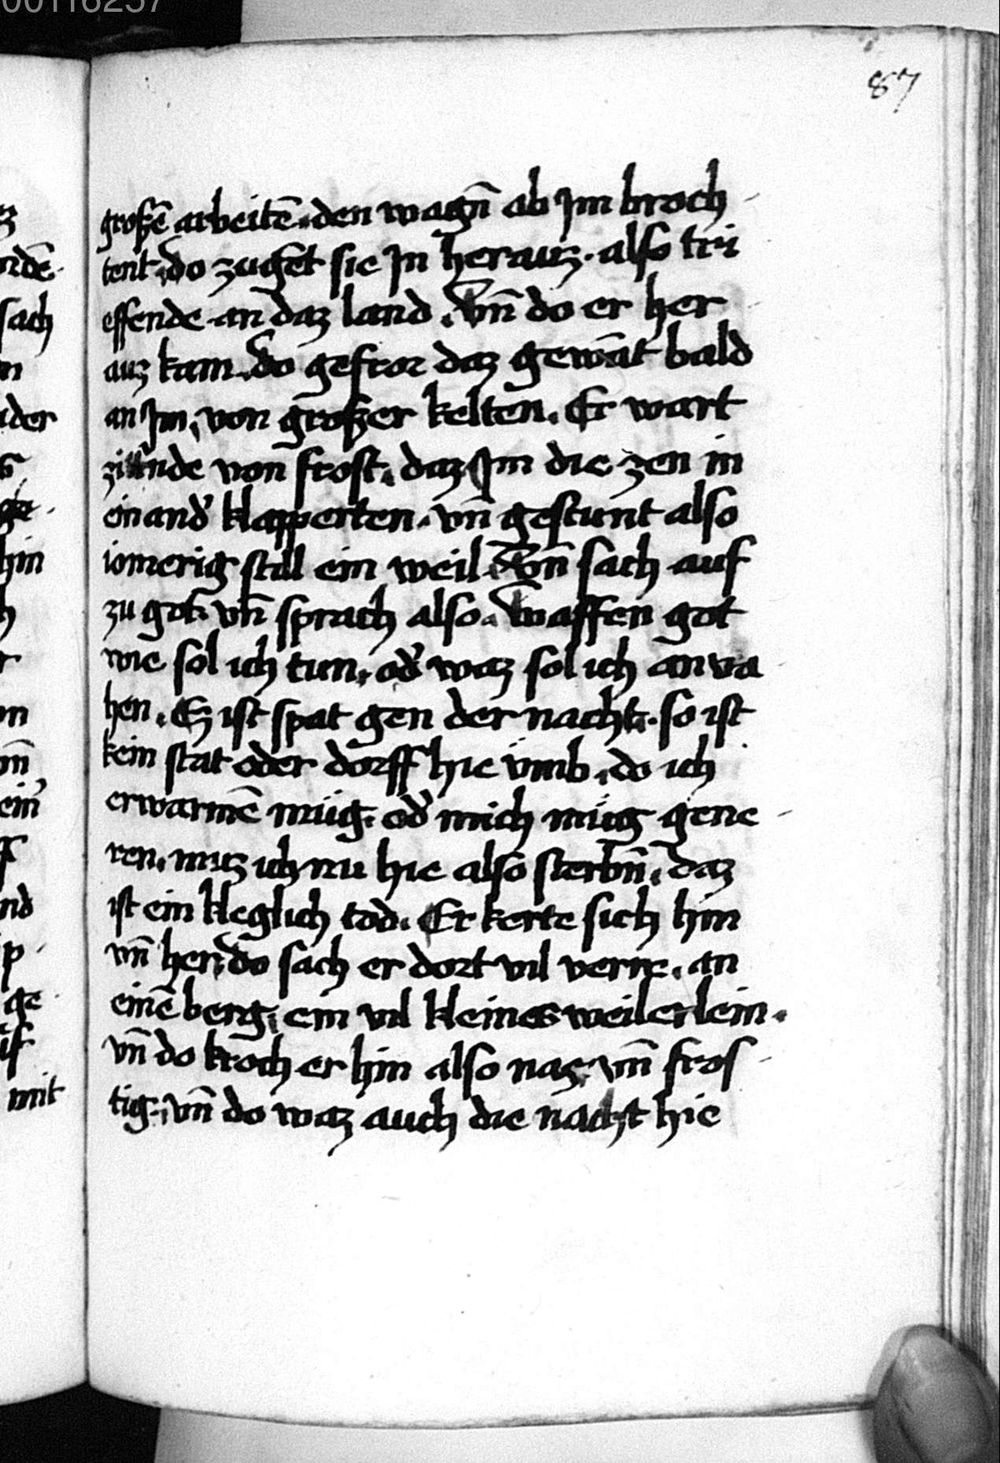 00116257
87
großē arbeitē. den wagn̄ ab Jm broch
tent. do zugēt sie Jn herauz. also tri
effende. an daz land. vn̄ do er her
auz kam. do gefror daz gewāt bald
an Jm, von großer kelten. Er wart
zittrnde von frost. daz Jm die zen in
ein and' klapperten. vn̄ gestunt also
iomerig still ein weil. vn̄ sach auf
zu got. vn̄ sprach also. waffen got
wie sol ich tun. od' waz sol ich an va
hen. Ez ist spat gen der nacht. so ist
kein stat oder dorff hie vmb. do ich
erwarmē müg. od' mich müg gene
ren. muz ich nu hie also sterbn̄. daz
ist ein kleglich tod. Er kerte sich hin
vn̄ her. do sach er dort vil verre. an
einē berg. ein vil kleines weilerlein.
vn̄ do kroch er hin also naz vn̄ fros
tig. vn̄ do waz auch die nacht hie